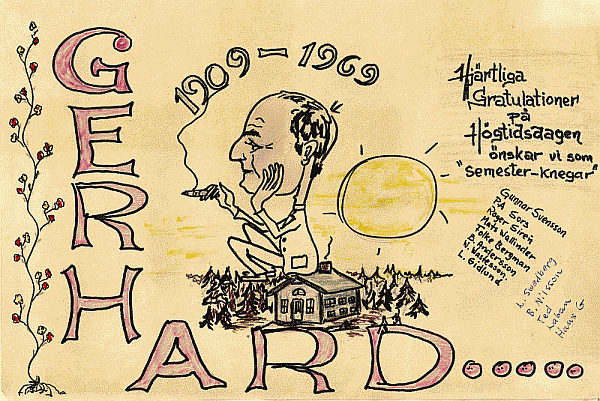 GERHARD.....
1909-1969
Hjärtliga
Gratulationer
på
Högtidsdagen
önskar vi som
"semester-knegar"
Gunnar Svensson
P.A Sors
Roger Sirén
Mats Wallinder
Tolke Bergman
B. Andersson
L. Gidlund.
L. Sundberg
B. Nilsson
Ted
Laban
Hans G